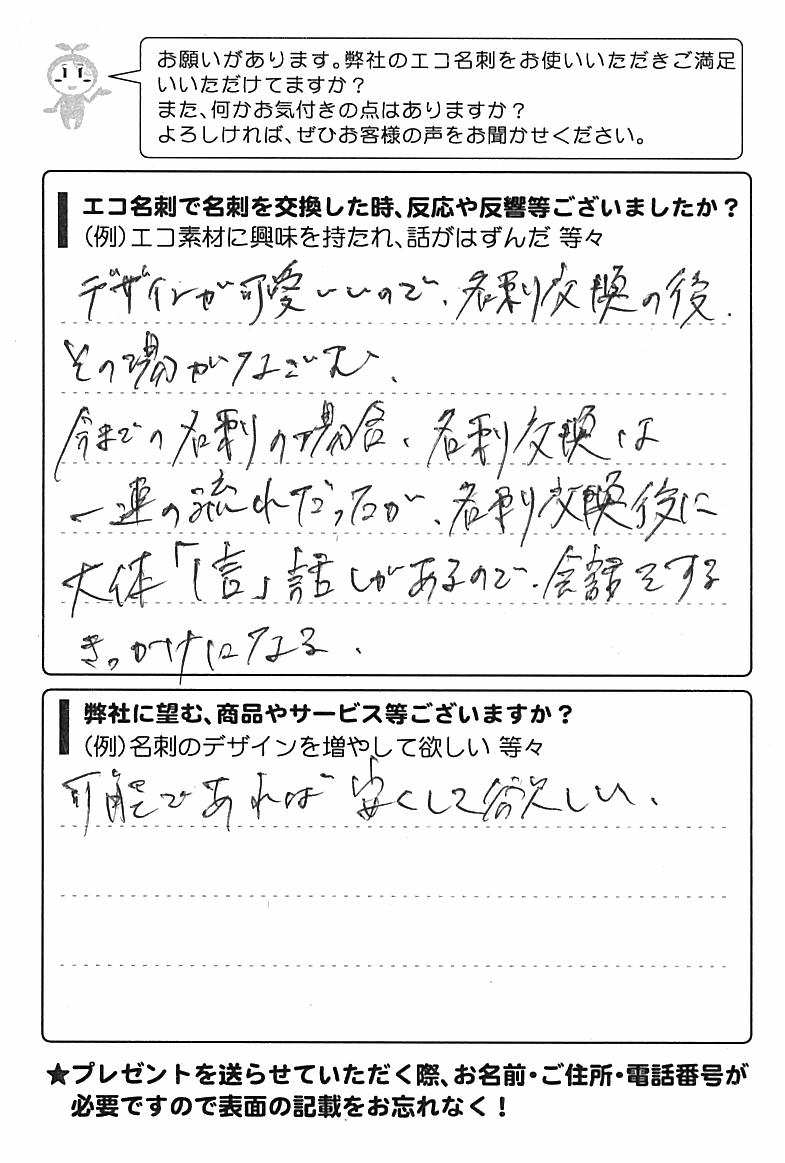 お願いがあります。弊社のエコ名刺をお使いいただきご満足
いいただけてますか？
また、何かお気付きの点はありますか？
よろしければ、ぜひお客様の声をお聞かせください。
エコ名刺で名刺を交換した時、反応や反響等ございましたか？
（例）エコ素材に興味を持たれ、話がはずんだ 等々
デザインが可愛いいので、名刺交換の後、
その場がなごむ、
今までの名刺の場合、名刺交換は
一連の流れだったが、名刺交換後に
大体「一言」話しがあるので、会話をする
きっかけになる、
弊社に望む、商品やサービス等ございますか？
（例）名刺のデザインを増やして欲しい 等々
可能であれば安くして欲しい、
★プレゼントを送らせていただく際、お名前・ご住所・電話番号が
必要ですので表面の記載をお忘れなく！